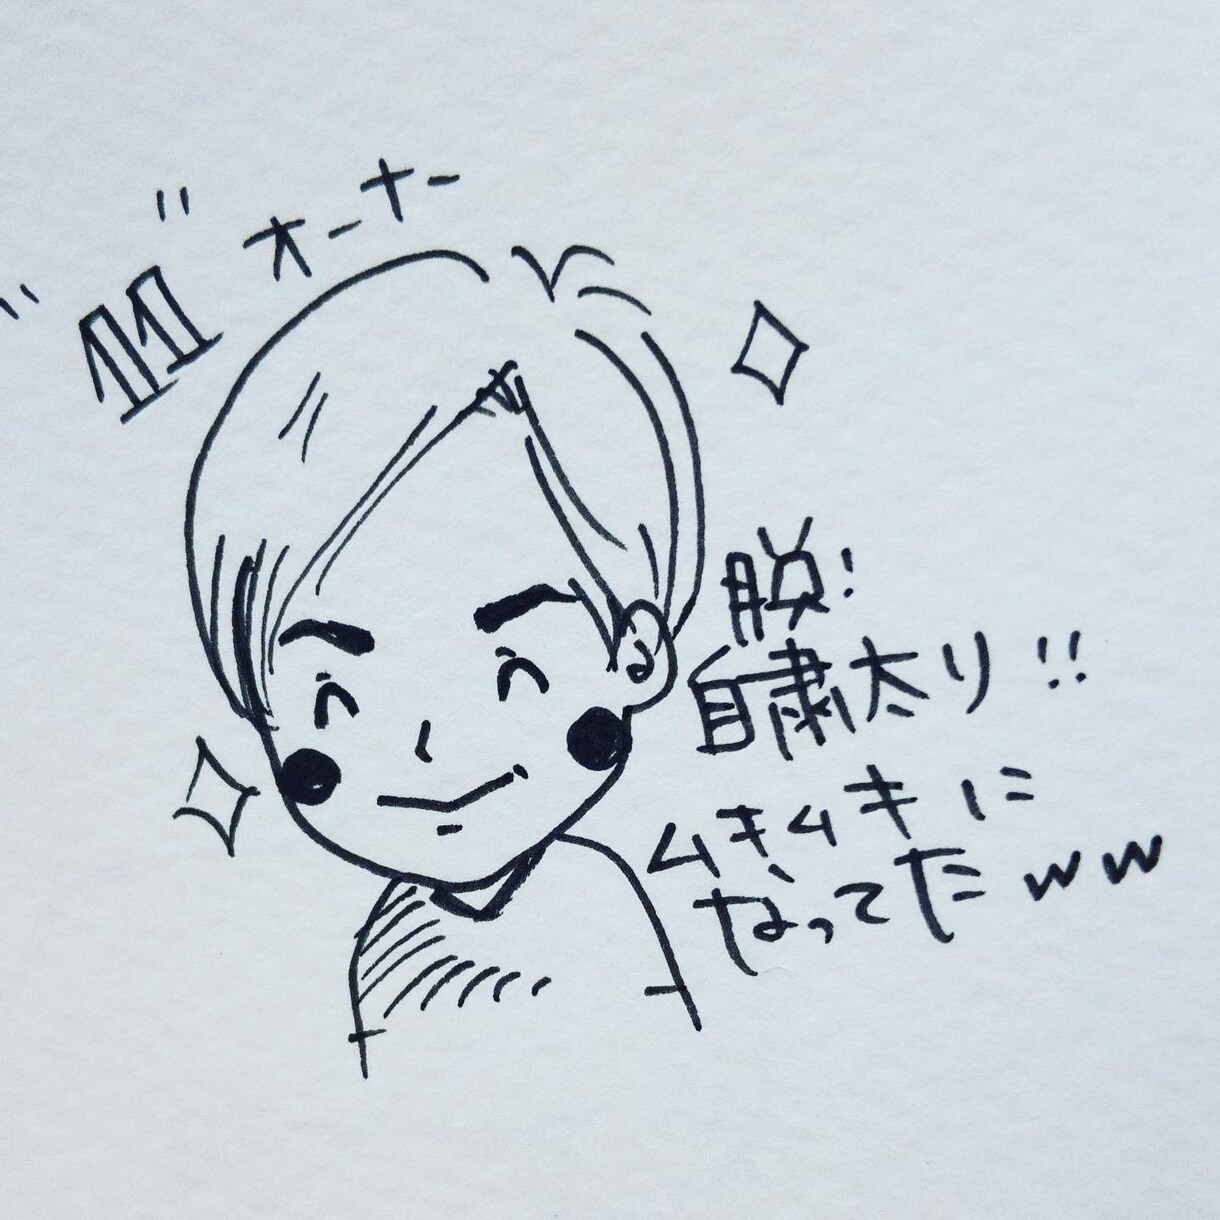 " 11 " オーナー
脱!
自粛太り!!
ムキムキに
なってたww